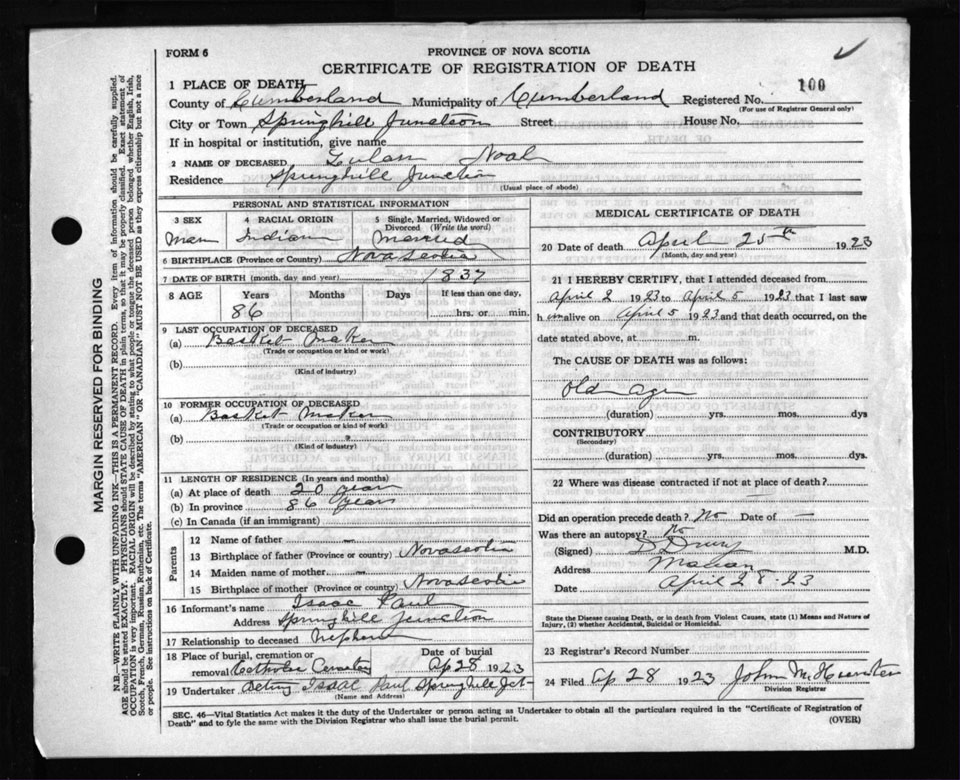 FORM 6
PROVINCE OF NOVA SCOTIA
CERTIFICATE OF REGISTRATION OF DEATH
100
1 PLACE OF DEATH
County of Cumberland Municipality of Cumberland Registered No.
(For use of Registrar General only)
City or Town Springhill Junction Street House No.
If in hospital or institution, give name
2 NAME OF DECEASED Noal
Residence Springhill Junction
(Usual place of abode)
PERSONAL AND STATISTICAL INFORMATION
3 SEX 4 RACIAL ORIGIN 5 Single, Married, Widowed or Divorced (Write the word)
Man Indian Married
6 BIRTHPLACE (Province or Country) Nova Scotia
7 DATE OF BIRTH (month, day and year) 1837
8 AGE Years Months Days If less than one day,
86 hrs. or min.
9 LAST OCCUPATION OF DECEASED
(a) Basket Maker
(Trade or occupation or kind or work)
(b)
(Kind of industry)
10 FORMER OCCUPATION OF DECEASED
(a) Basket Maker
(Trade or occupation or kind or work)
(b)
(Kind of industry)
11 LENGTH OF RESIDENCE (In years and months)
(a) At place of death 20 years
(b) In province 86 years
(c) In Canada (if an immigrant)
Parents
12 Name of father —
13 Birthplace of father (Province or country) Nova Scotia
14 Maiden name of mother —
15 Birthplace of mother (Province or country) Nova Scotia
16 Informant's name Isaac Paul
Address Springhill Junction
17 Relationship to deceased Nephew
18 Place of burial, cremation or removal Catholic Cemetery Date of burial Ap 28 1923
19 Undertaker Acting Isaac Paul Springhill Jct
(Name and Address)
MEDICAL CERTIFICATE OF DEATH
20 Date of death April 25th 1923
(Month, day and year)
21 I HEREBY CERTIFY, that I attended deceased from
April 2 1923 to April 5 1923 that I last saw
him alive on April 5 1923 and that death occurred, on the
date stated above, at m.
The CAUSE OF DEATH was as follows:
Old age
(duration) yrs. mos. dys
CONTRIBUTORY
(Secondary)
(duration) yrs. mos. dys.
22 Where was disease contracted if not at place of death?
Did an operation precede death? No Date of —
Was there an autopsy? No
(Signed) M.D.
Address
Date April 28-23
State the Disease causing Death, or in death from Violent Causes, state (1) Means and Nature of Injury, (2) whether Accidental, Suicidal or Homicidal.
23 Registrar's Record Number
24 Filed Ap 28 1923 John
Division Registrar
SEC. 46—Vital Statistics Act makes it the duty of the Undertaker or person acting as Undertaker to obtain all the particulars required in the "Certificate of Registration of
Death" and to fyle the same with the Division Registrar who shall issue the burial permit. (OVER)
MARGIN RESERVED FOR BINDING
N.B.—WRITE PLAINLY WITH UNFADING INK—THIS IS A PERMANENT RECORD. Every item of information should be carefully supplied.
AGE should be stated EXACTLY. PHYSICIANS should STATE CAUSE OF DEATH in plain terms, so that it may be properly classified. Exact statement of
OCCUPATION is very important. RACIAL ORIGIN will be described by stating to what people or tongue the deceased person belonged whether English, Irish,
Scotch, French, German, Russian, Ruthenian, etc. The terms "AMERICAN" OR "CANADIAN" MUST NOT BE USED as they express citizenship but not a race
or people. See instructions on back of Certificate.